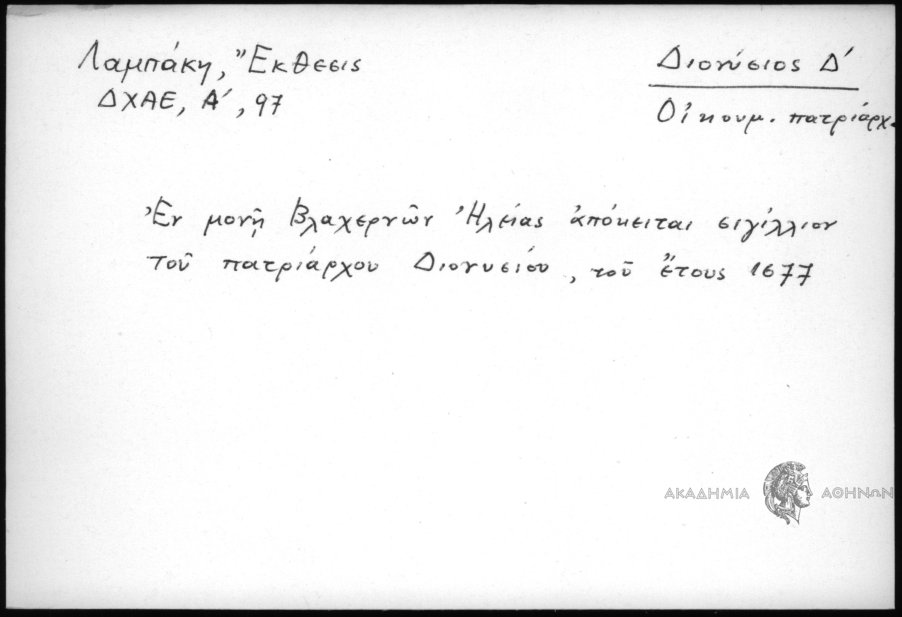 Λαμπάκη, Ἔκθεσις
ΔΧΑΕ, Α΄, 97
Διονύσιος Δ΄
Οἰκουμ. πατριάρχ.
Ἐν μονῇ Βλαχερνῶν Ἠλείας ἀπόκειται σιγίλλιον
τοῦ πατριάρχου Διονυσίου, τοῦ ἔτους 1677
ΑΚΑΔΗΜΙΑ ΑΘΗΝΩΝ